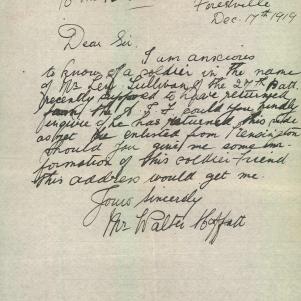 Forestville
Dec. 17th 1919
Dear Sir.
I am anxious
to know of a soldier in the name
of Mr Len Sullivan of the 27th Batt.
recently supposed to have returned
from the A I F could you kindly
enquire if he has returned this side
as yet he enlisted from Kensington
Should you give me some in-
formation of this soldier friend
this address would get me.
Yours Sincerely
Mr Walter